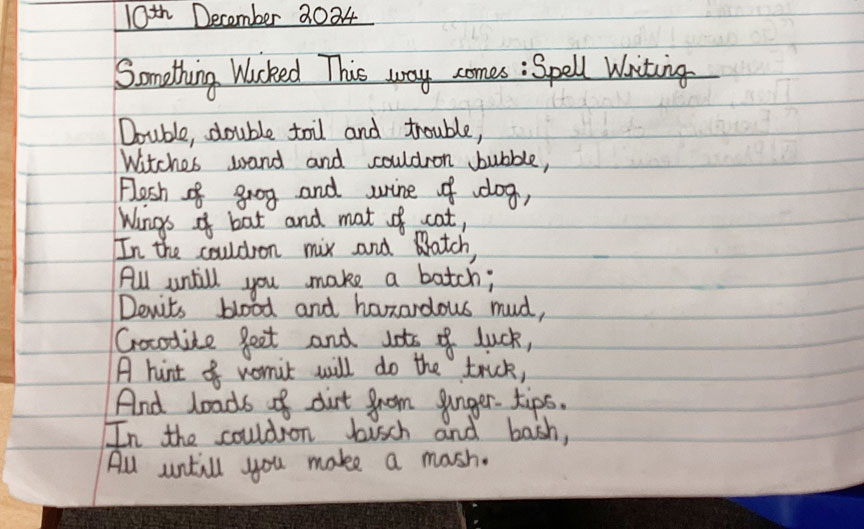 10th December 2024
Something Wicked This way comes : Spell Writing
Double, double toil and trouble,
Witches wand and couldron bubble,
Flesh of grog and urine of dog,
Wings of bat and mat of cat,
In the couldron mix and Batch,
All untill you make a batch;
Devits blood and hazardous mud,
Crocodile feet and lots of luck,
A hint of vomit will do the trick,
And loads of dirt from finger-tips.
In the couldron bisch and bash,
All untill you make a mash.